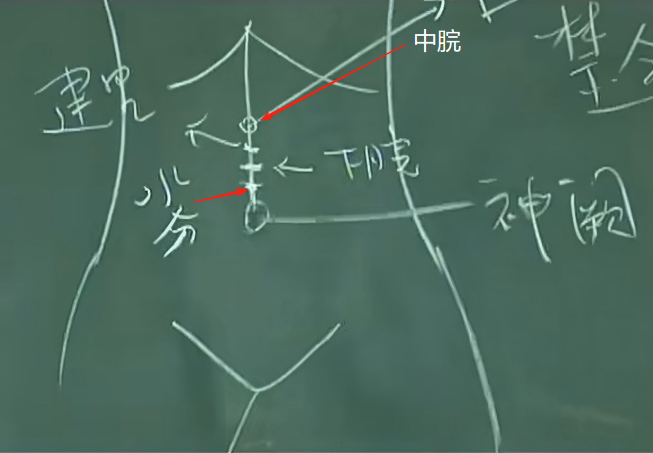 中脘
建里
下脘
水
分
神阙